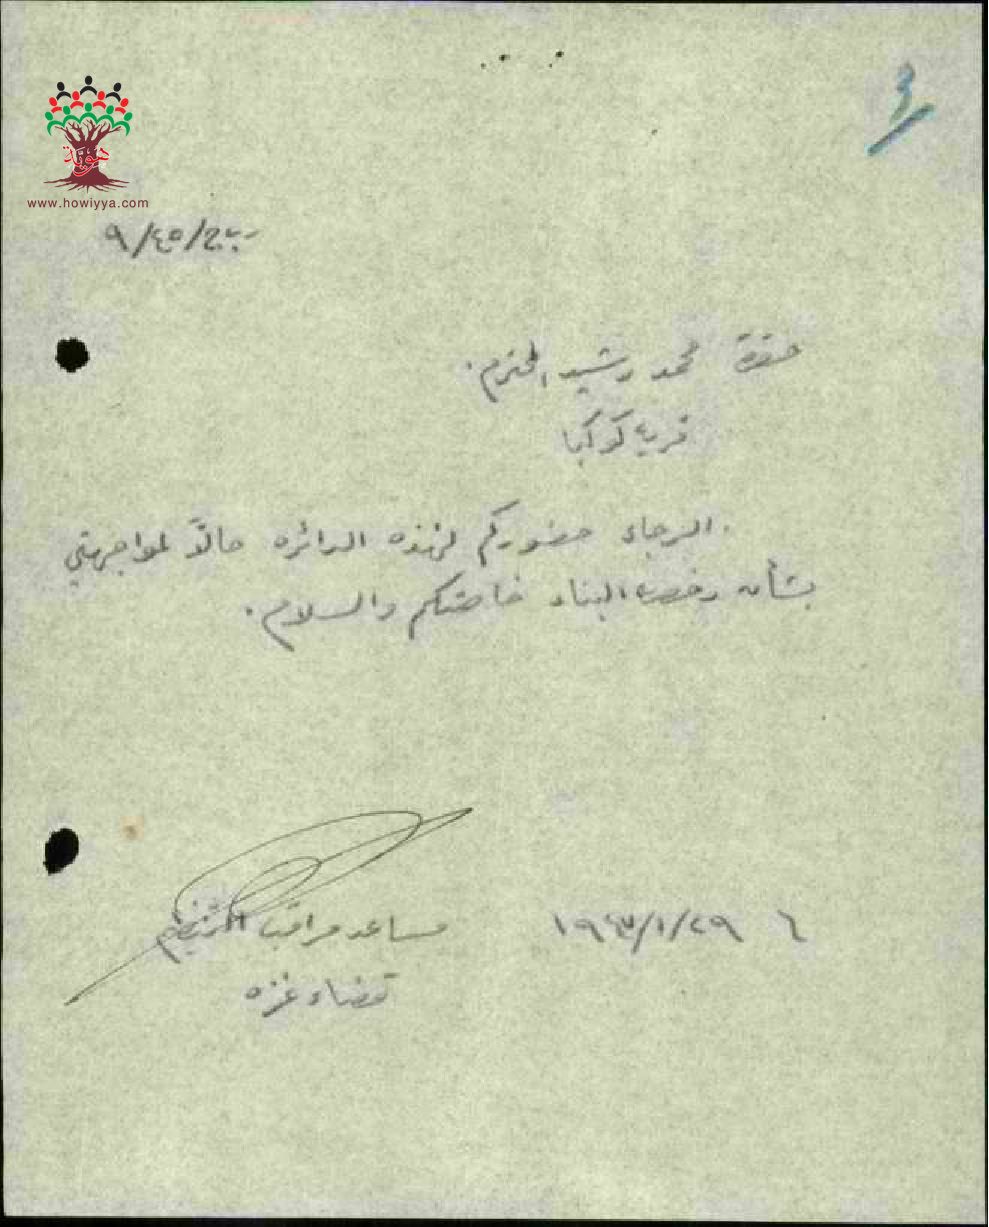 ٣
هوية
www.howiyya.com
٩/٤٥/
حضرة محمد رشيد المحترم.
قرية كوكبا
الرجاء حضوركم لهذه الدائره حالاً لمواجهتي
بشأن رخصة البناء خاصتكم والسلام.
١٩٤٣/١/٢٩
مساعد مراقب التنظيم
قضاء غزه